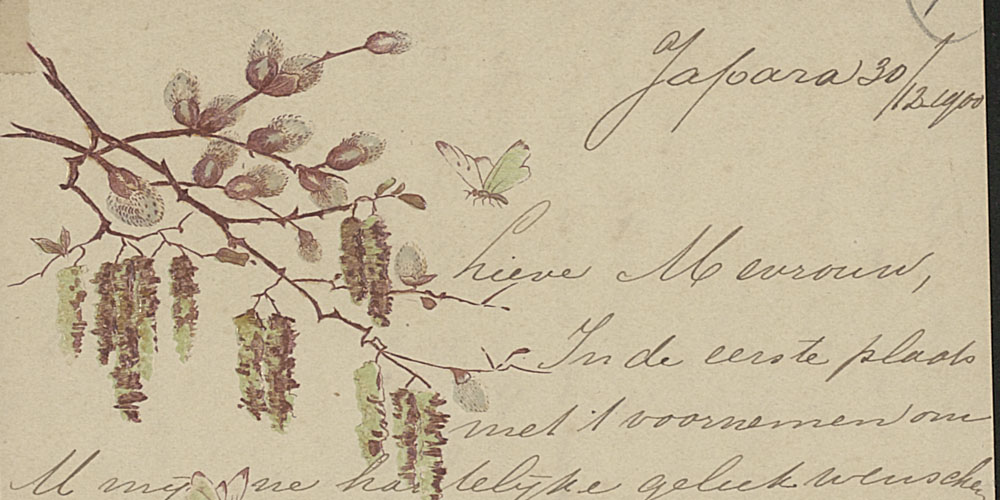 Japara 30/12-1900
Lieve Mevrouw,
In de eerste plaats
met 't voornemen om
U mijne hartelijke gelukwenschen